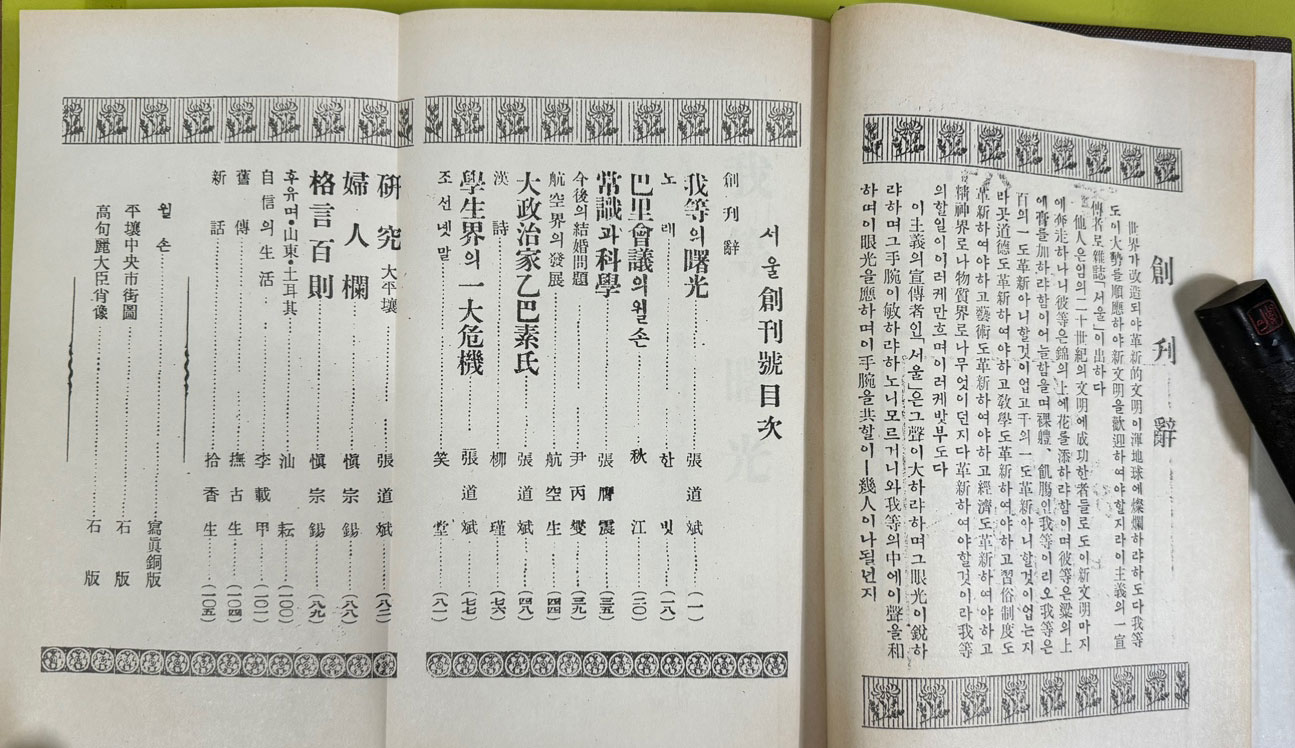 創刊辭
世界가改造되야革新的文明이渾地球에燦爛하랴하도다我等
도이大勢를順應하야新文明을歡迎하여야할지라이主義의一宣
傳者로雜誌「서울」이出하다
他人은임의二十世紀의文明에成功한者들로도이新文明까지
에奔走하나니彼等은錦의上에花를添하랴함이며彼等은粱의上
에膏를加하랴함이어늘함을며裸軆、飢膓인我等이리오我等은
百의一도革新아니할것이업고千의一도革新아니할것이업는지
라곳道德도革新하여야하고敎學도革新하여야하고習俗制度도
革新하여야하고藝術도革新하여야하고經濟도革新하여야하고
精神界로나物質界로나무엇이던지다革新하여야할것이라我等
의할일이이러케만흐며이러케밧부도다
이主義의宣傳者인「서울」은그聲이大하랴하며그眼光이銳하
랴하며그手腕이敏하랴하노니모르거니와我等의中에이聲을和
하며이眼光을應하며이手腕을共할이ㅣ幾人이나될넌지
서울創刊號目次
創刊辭
我等의曙光……張道斌……(一)
노래……한빗……(一八)
巴里會議의윌손……秋江……(三〇)
常識과科學……張膺震……(三五)
今後의結婚問題……尹丙燮……(三九)
航空界의發展……航空生……(四四)
大政治家乙巴素氏……張道斌……(四八)
漢詩……柳瑾……(七六)
學生界의一大危機……張道斌……(七七)
조선녯말……笑堂……(八一)
硏究 大平壤……張道斌……(八二)
婦人欄……愼宗錫……(八八)
格言百則……愼宗錫……(八九)
후유며•山東•土耳其……汕耘……(一〇〇)
自信의生活……李載甲……(一〇一)
舊傳……撫古生……(一〇四)
新話……拾香生……(一〇五)
윌손……寫眞銅版
平壤中央市街圖……石版
高句麗大臣肖像……石版